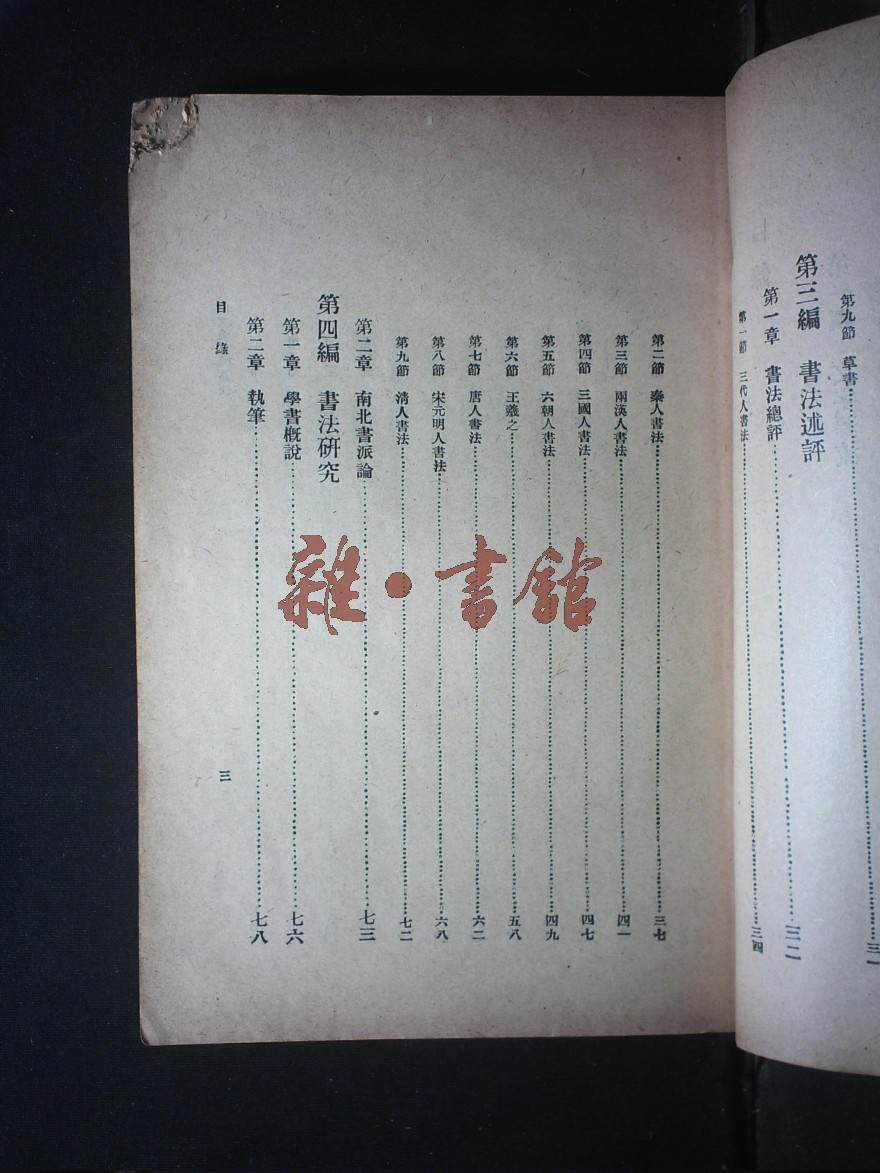 第九節 草書 三一
第三編 書法述評
第一章 書法總評 三二
第一節 三代人書法 三四
第二節 秦人書法 三七
第三節 兩漢人書法 四一
第四節 三國人書法 四七
第五節 六朝人書法 四九
第六節 王羲之 五八
第七節 唐人書法 六二
第八節 宋元明人書法 六八
第九節 清人書法 七二
第二章 南北書派論 七三
第四編 書法研究
第一章 學書概說 七六
第二章 執筆 七八
目錄
三
雜·書館